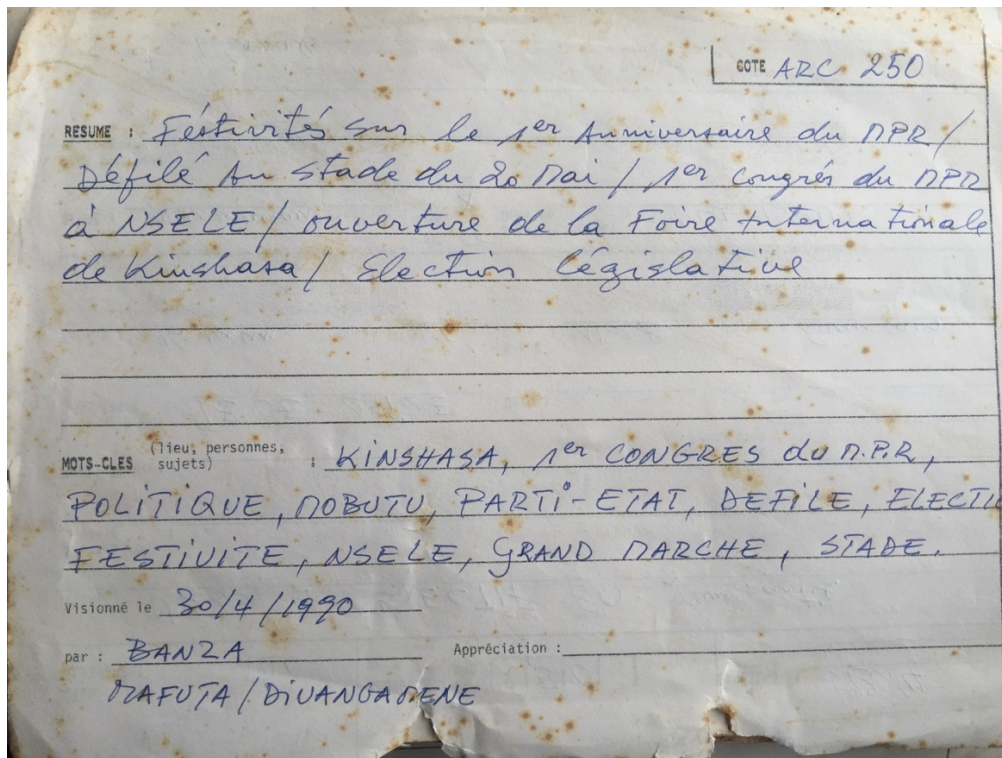 COTE ARC 250
RESUME : Féstivités sur le 1er Anniversaire du MPR /
Défilé Au stade du 20 Mai / 1er congrés du MPR
à NSELE / ouverture de la Foire Internationale
de Kinshasa / Election législative
MOTS-CLES (lieu, personnes, sujets) : KINSHASA, 1er CONGRES du M.P.R,
POLITIQUE, MOBUTU, PARTI-ETAT, DEFILE, ELECTI
FESTIVITE, NSELE, GRAND MARCHE, STADE.
Visionné le 30/4/1990
par : BANZA Appréciation :
MAFUTA / DIVANGAMENE